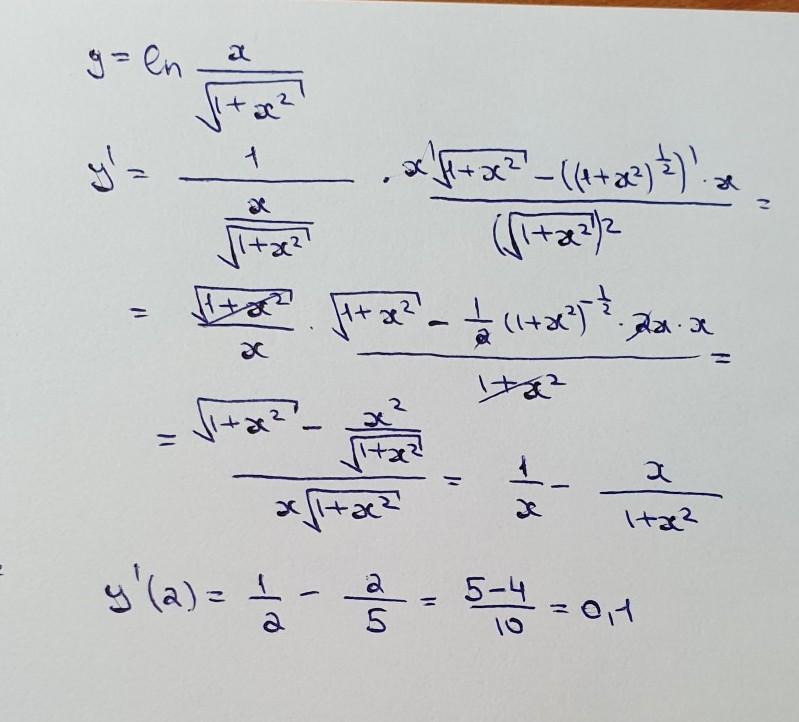 y = ln x/√(1+x²)
y' = 1/(x/√(1+x²)) · (x'√(1+x²) - ((1+x²)^(1/2))' · x)/(√(1+x²))² =
= √(1+x²)/x · (√(1+x²) - 1/2 (1+x²)^(-1/2) · 2x · x)/(1+x²) =
= (√(1+x²) - x²/√(1+x²))/(x√(1+x²)) = 1/x - x/(1+x²)
y'(2) = 1/2 - 2/5 = (5-4)/10 = 0,1